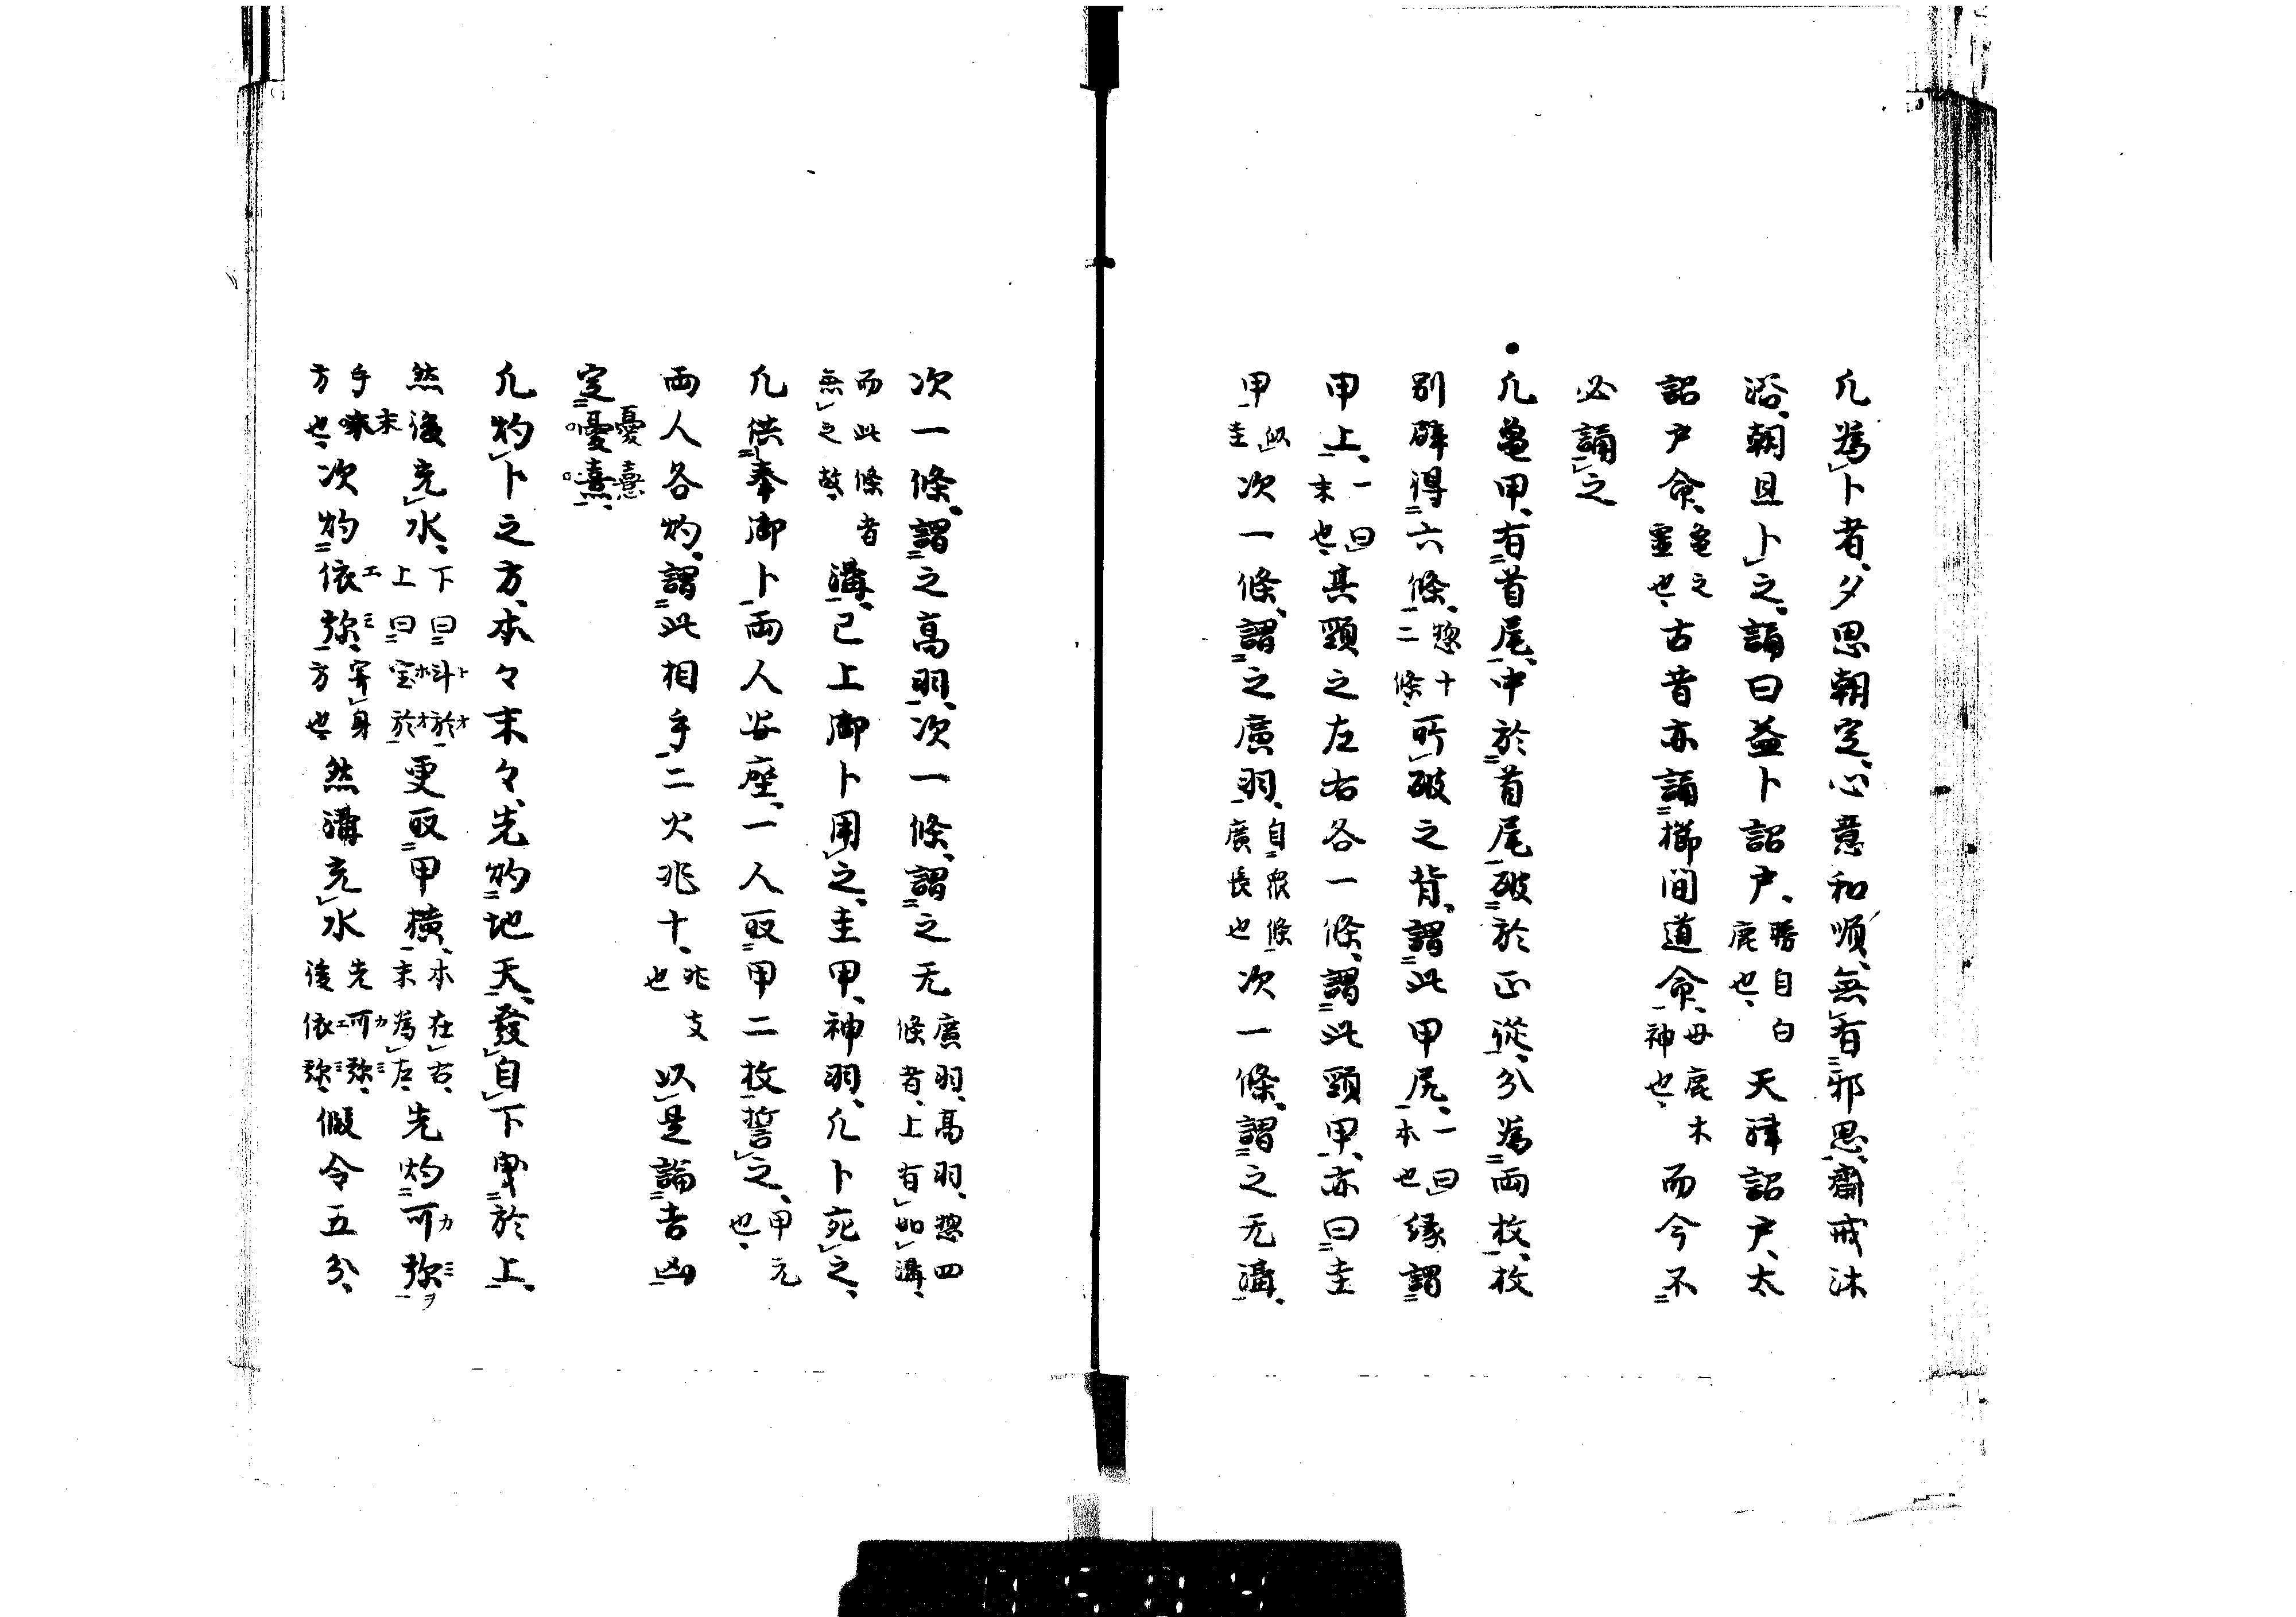 凢為卜者、夕思朝定、心意和順、無有邪思、齋戒沐
浴、朝旦卜之、誦曰益卜詔戸、勝自白鹿也、天津詔戸、太
詔戸命、亀之霊也、古昔亦誦櫛間道命、母鹿木神也、而今不
必誦之
凢亀甲、有首尾、中於首尾破於正從、分為兩枚、枚
別礔得六條、惣十二條、所破之背、謂此甲尻、一曰本也、縁謂
甲上、一曰末也、其頸之左右各一條、謂此頸甲、亦曰圭
甲、以圭次一條、謂之廣羽、自衆條廣長也次一條、謂之无溝、
次一條、謂之高羽、次一條、謂之无廣羽、高羽、惣四條者、上有如溝、
而此條者無之故、溝、已上御卜用之、圭甲、神羽、凢卜死之、
凢供奉御卜兩人安座、一人取甲二枚誓之、甲元也、
兩人各灼、謂此相手、二火兆十、兆支也以是論吉凶
定憂憙、憂憙
凢灼卜之方、本々末々、先灼地天、發自下曳於上、
然後充水、下曰斗於上曰宝於更取甲横、本在右、末為左、先灼可弥
手末方也、次灼依弥、寄身方也、然溝充水先可弥、後依弥、假令五分、